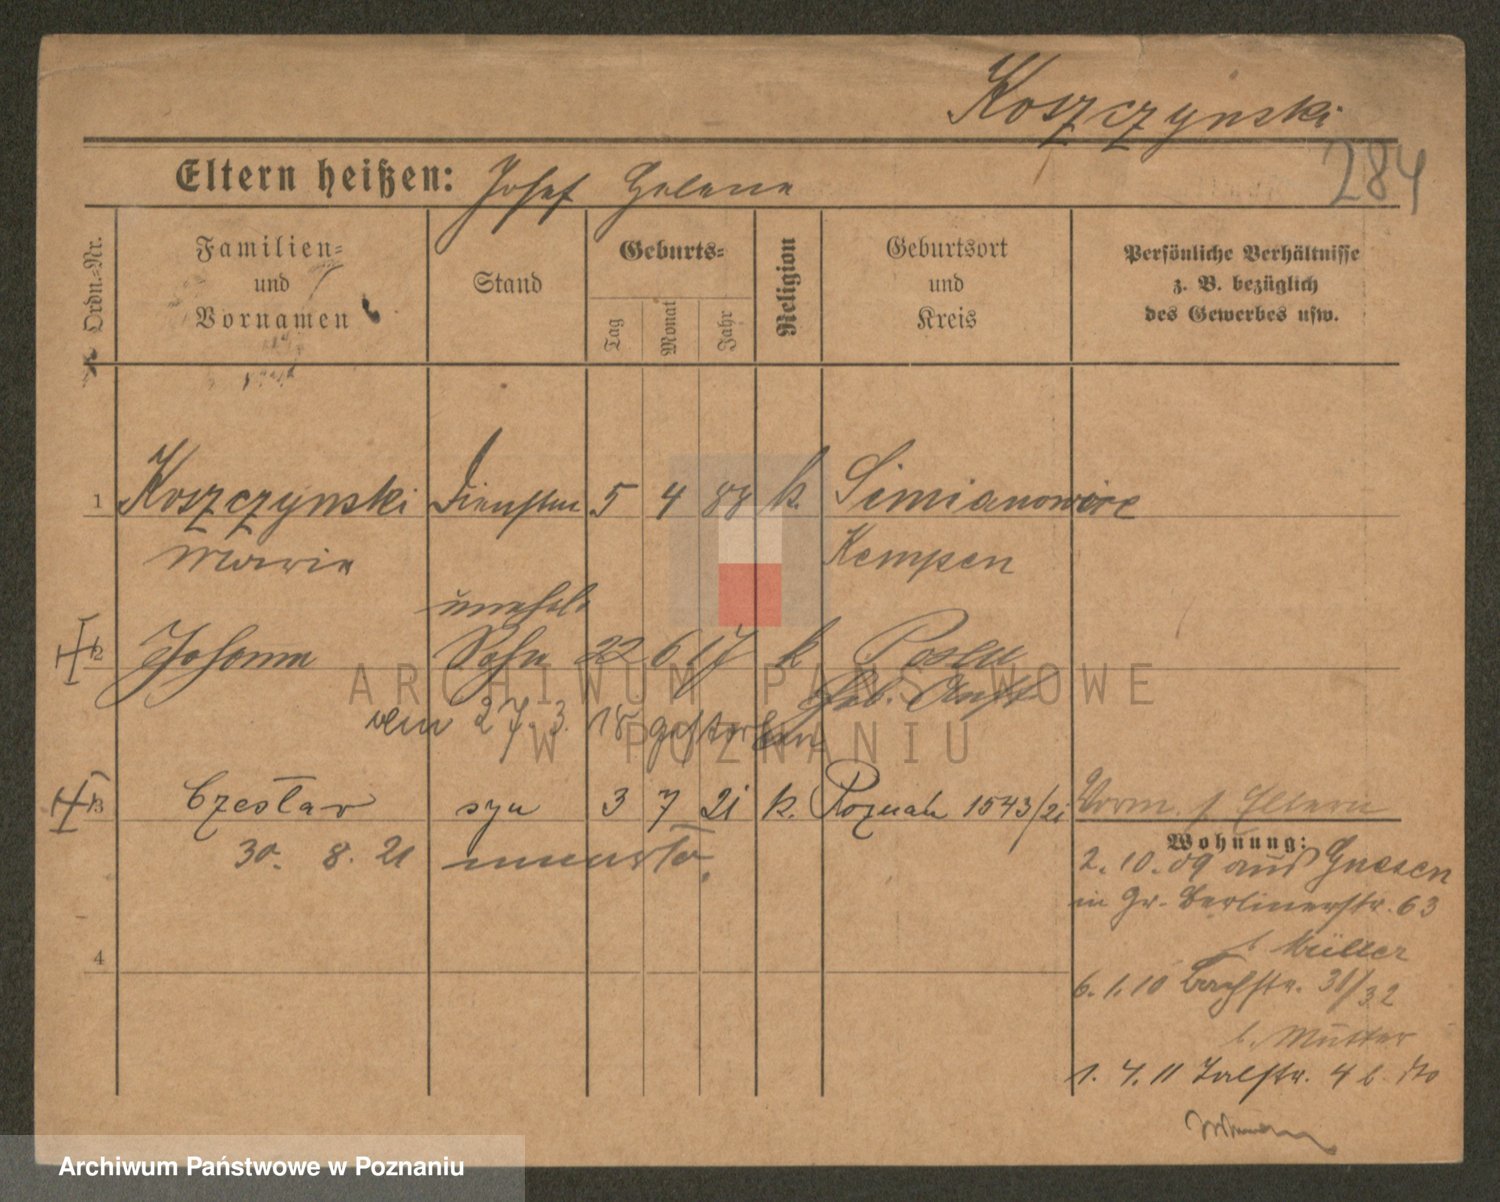 Koszczynski
284
Eltern heißen: Josef Helene
Ordn.-Nr.
Familien-
und
Vornamen
Stand
Geburts-
Tag
Monat
Jahr
Religion
Geburtsort
und
Kreis
Persönliche Verhältnisse
z. B. bezüglich
des Gewerbes usw.
1 Koszczynski 5 4 88 k. Simianowice
Marie Kempen
unehel.
2 Sohn 22 6 17 k Posen
vem 27. 3. 18 gestorben
3 Czesław syn 3 7 21 k. Poznań 1543/21 Vorm. f. Eltern
30. 8. 21 umarło.
Wohnung:
2. 10. 09 aus Gnesen
in Gr. Berlinerstr. 63
b. Müller
6. 1. 10 Bachstr. 31/32
b. Mutter
4
1. 4. 11 Talstr. 4 b.
ARCHIWUM PAŃSTWOWE
W POZNANIU
Archiwum Państwowe w Poznaniu